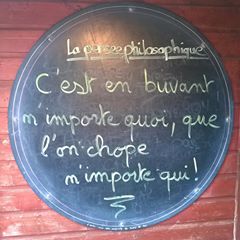 La pensée philosophique
C'est en buvant
n'importe quoi, que
l'on chope
n'importe qui !